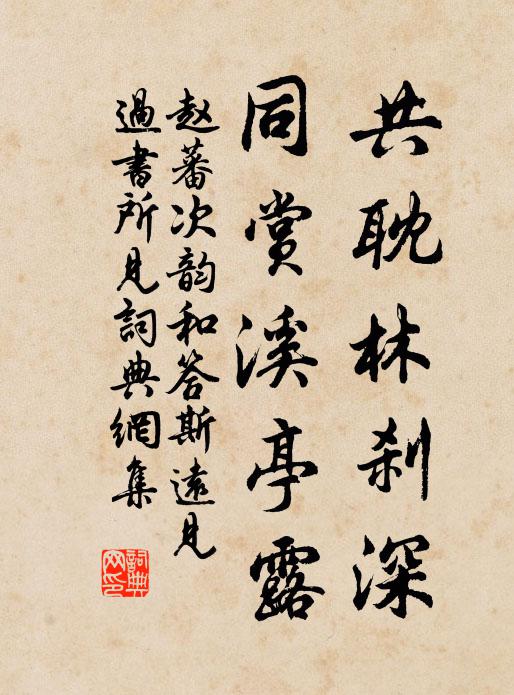 共耽林刹深
同赏溪亭露
赵蕃次韵和答斯遠見
過書所見詞典網集
詞典网印